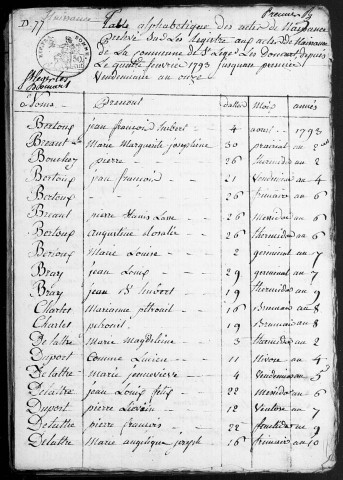 D. 77 Naissance Premier
Table alphabetique des actes de Naissance
Extrait Sur Les Registre aux actes de Naissance
de La commune de St Leger Les Domart, depuis
Le quatre fevrier 1793 jusqu'au premier
Vendemiaire an onze
St Leger les Domart
Noms Prenom dattes Mois années
Bertoux jean françois hubert 4 aout 1793
Breant Marie Marguerite josephine 30 prairial an 2
Bouchey pierre 26 thermidor an 2
Bertoux jean françois 21 Vendemiaire an 4
Bertoux 26 frimaire an 6
Breant pierre Stanis Lave 26 messidor an 6
Bertoux augustine doralie 26 thermidor an 6
Bertoux Marie Louise 2 germinal an 7
Bray jean Louis 29 germinal an 7
Bray jean Bte hubert 19 thermidor an 9
Chartes Marianne petrouil 16 Brumaire an 8
Chartes petrouil 19 Brumaire an 8
Delattre Marie Magdeleine 3 thermidor an 2
Duport Comme 11 Nivose an 4
Delattre Marie jenneviève 4 Vendemiaire an 5
Delattre jean Louis felix 22 messidor an 6
Duport pierre Lievein 12 Ventose an 7
Delattre pierre francois 22 fructidor an 9
Delattre Marie angelique joseph 16 frimaire an 10